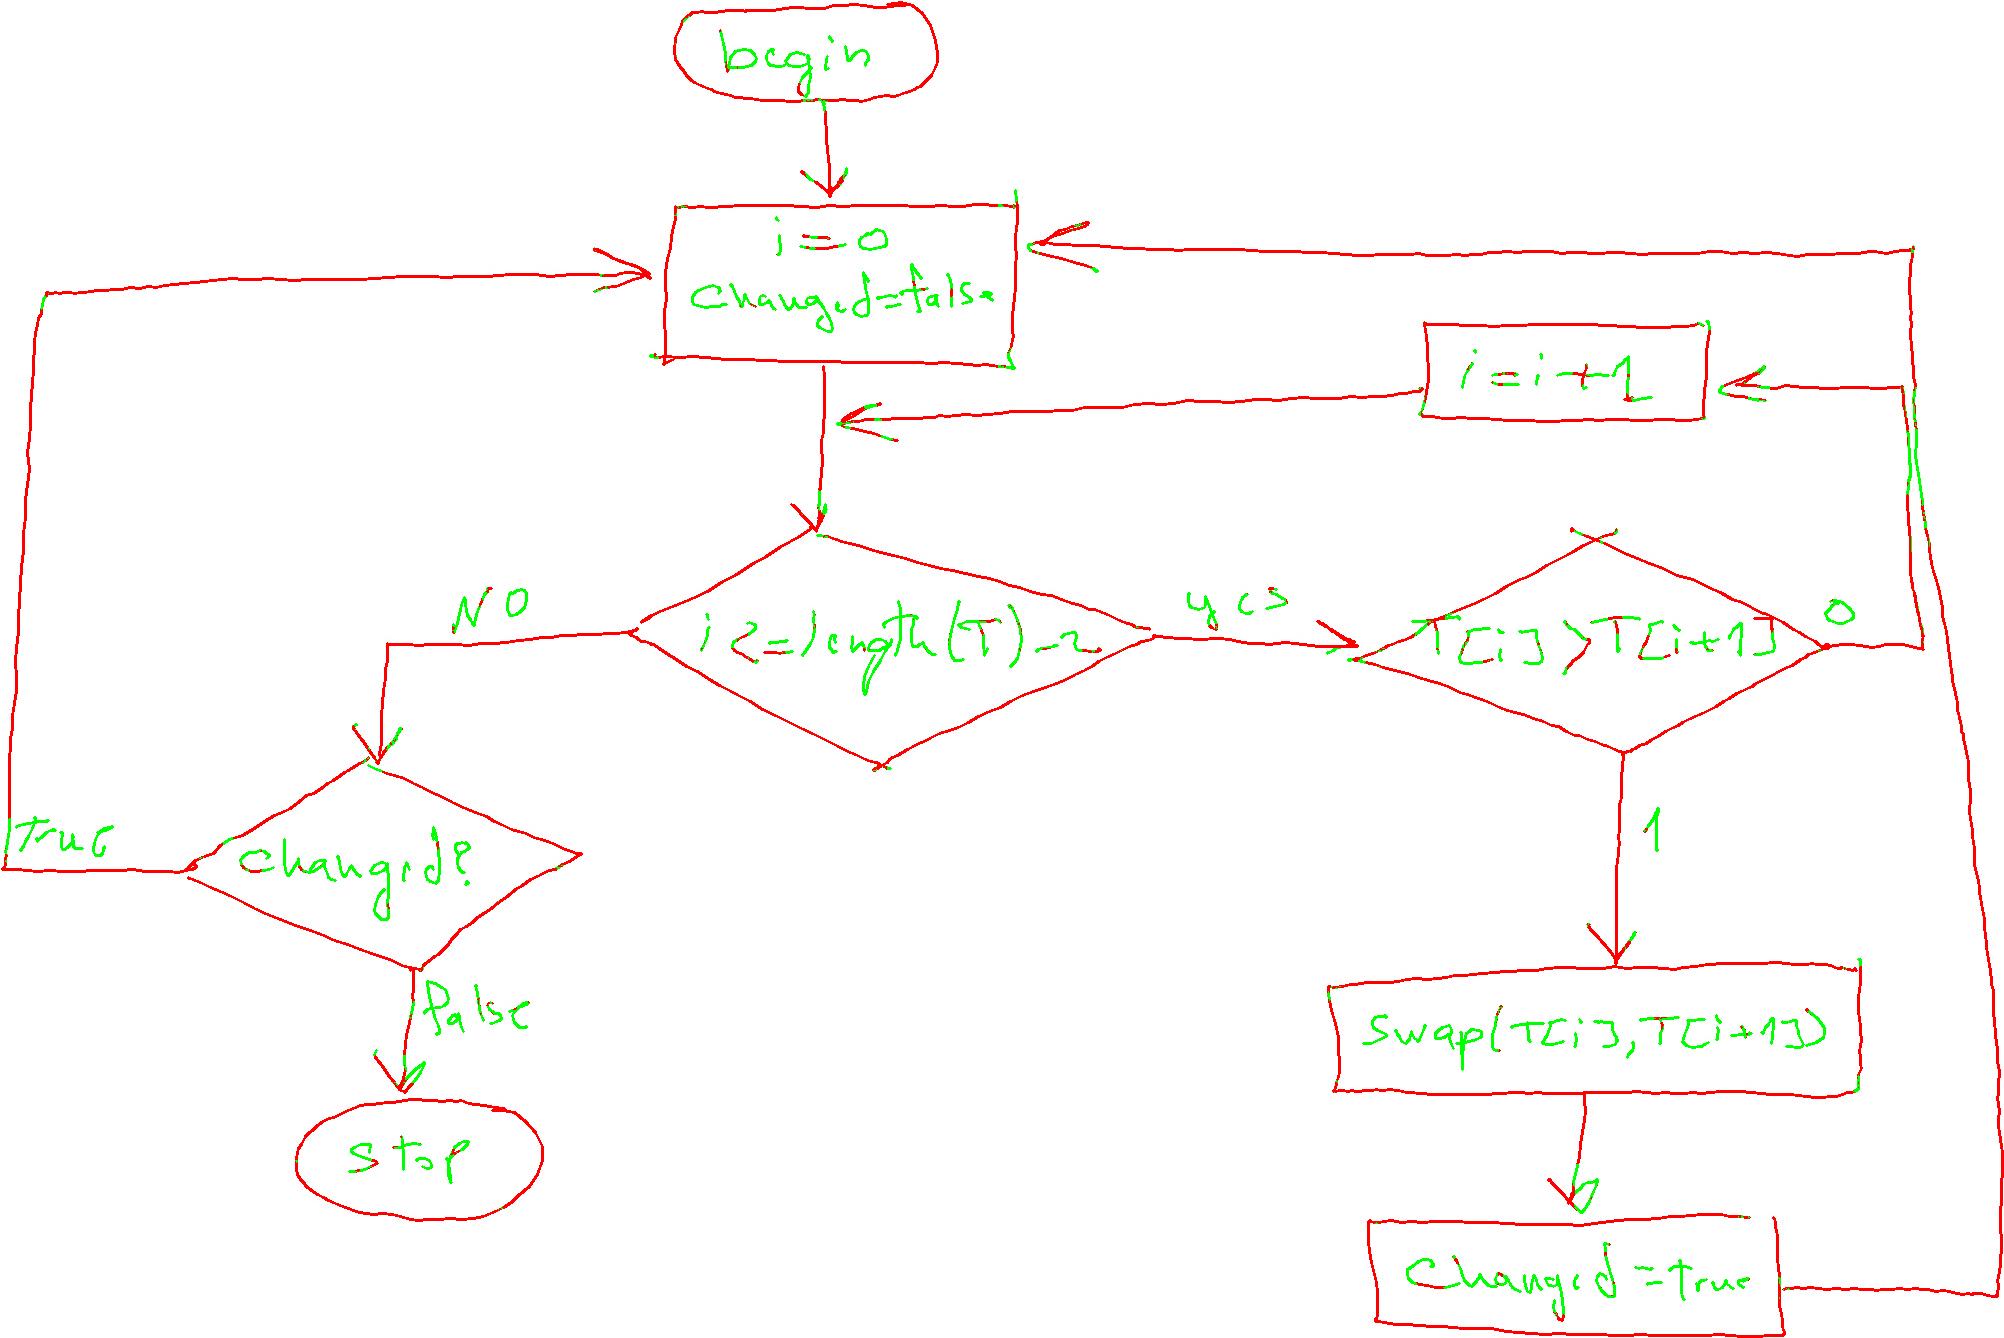 begin
i=0
changed=false
i=i+1
NO
i<=length(T)-2
yes
T[i]>T[i+1]
0
True
changed?
1
false
swap(T[i],T[i+1])
stop
changed=true